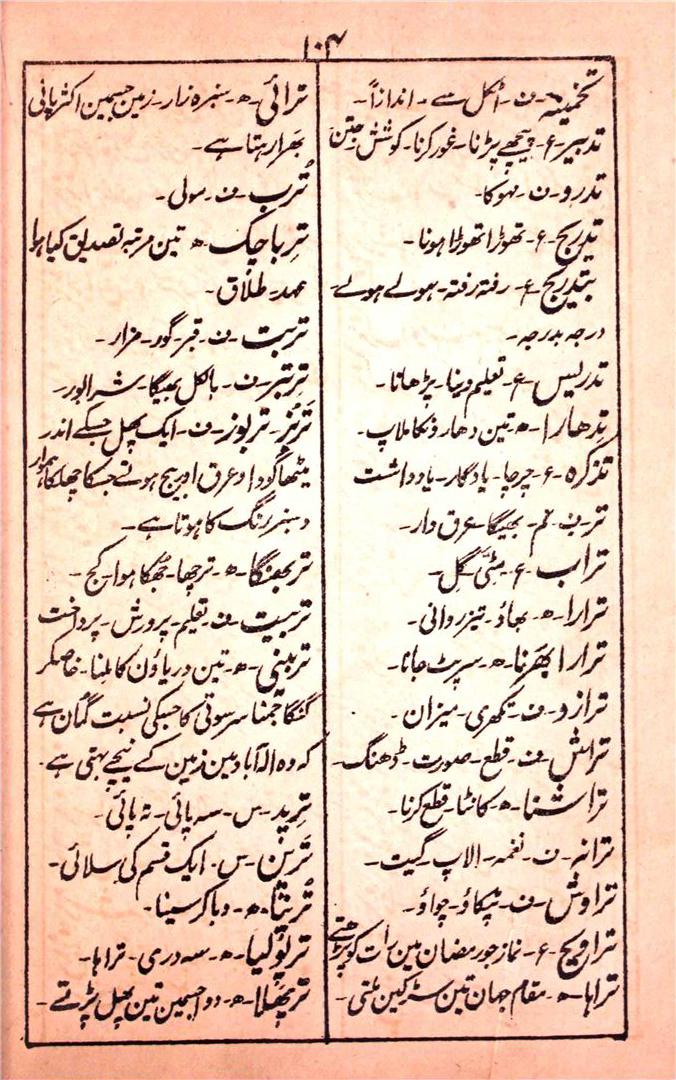 ۱۰۴
تخمینہ۔ ف۔ اٹکل سے۔ اندازاً۔
تدبیر۔ ع۔ پیچھے پڑنا۔ غور کرنا۔ کوشش جتن
تدرو۔ ف۔
تدریج۔ ع۔ تھوڑا تھوڑا ہونا۔
بتدریج۔ ع۔ رفتہ رفتہ۔ ہولے ہولے۔
درجہ بدرجہ۔
تدریس۔ ع۔ تعلیم دینا۔ پڑھانا۔
تدھارا۔ ھ۔ تین دھارونکا ملاپ۔
تذکرہ۔ ع۔ چرچا۔ یادگار۔ یادداشت
تر۔ ف۔ نم۔ بھیگا۔ عرق دار۔
تراب۔ ع۔ مٹی۔ گِل۔
ترارا۔ ھ۔ بھاؤ۔ تیز روانی۔
ترارا بھَرنا۔ ھ۔ سرپٹ جانا۔
ترازو۔ ف۔ تکھری۔ میزان۔
تراش۔ ف۔ قطع۔ صورت۔ ڈھنگ۔
تراشنا۔ ھ۔ کاٹنا۔ قطع کرنا۔
ترانہ۔ ف۔ نغمہ۔ الاپ۔ گیت۔
تراوش۔ ف۔ ٹپکاؤ۔ چواؤ۔
تراویح۔ ع۔ نماز جو رمضان مین رات کو پڑھتے
تراہا۔ ھ۔ مقام جہان تین سڑکین ملتی۔
ترائی۔ ھ۔ سبزہ زار۔ زمین جسمین اکثر پانی
بھَرا رہتا ہے۔
تُرب۔ ف۔ مولی۔
تِرباچک۔ ھ۔ تین مرتبہ تصدیق کیا ہوا
عہد۔ طلاق۔
تربت۔ ف۔ قبر۔ گور۔ مزار۔
تربتر۔ ف۔ بالکل بھیگا۔ شرابور۔
تَربُز۔ تربوز۔ ف۔ ایک پھل جسکے اندر
میٹھا گودا و عرق اور بیج ہوتے جسکا چھلکا ہموار
و سبز رنگ کا ہوتا ہے۔
تربھنگا۔ ھ۔ ترچھا۔ جھُکا ہوا۔ کج۔
تربیت۔ ف۔ تعلیم۔ پرورش۔ پرداخت
تربینی۔ ھ۔ تین دریاؤن کا ملنا۔ خاصکر
گنگا جمنا سرسوتی کا جسکی نسبت گمان ہے
کہ وہ الہ آباد مین زمین کے نیچے بہتی ہے۔
تِرپد۔ س۔ سہ پائی۔ تپائی۔
تَرپن۔ س۔ ایک قسم کی سلائی۔
تُرپنا۔ ھ۔ دبا کر سینا۔
ترپَولیا۔ ھ۔ سہ دری۔ تراہا۔
ترپھَلا۔ ھ۔ دوا جسمین تین پھل پڑتے۔